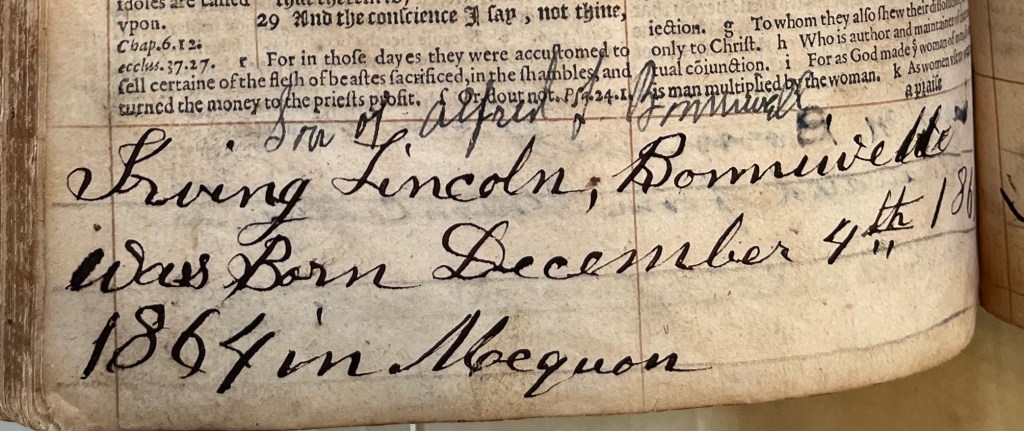 Idoles are called
vpon.
Chap.6.12.
ecclus.37.27.
that therein
29 And the conscience I say, not thine,
r For in those dayes they were accustomed to
sell certaine of the flesh of beastes sacrificed, in the shambles, and
turned the money to the priests profit. ſ Or dout not. Ps.24.1.
iection. g To whom they also shew their
only to Christ. h Who is author and maintainer
tual cõiunction. i For as God made ỹ woman of
is man multiplied by the woman. k As women
a praise
Son of Alfred & Bonniwell
Irving Lincoln, Bonniwelle
was Born December 4th 186
1864 in Mequon